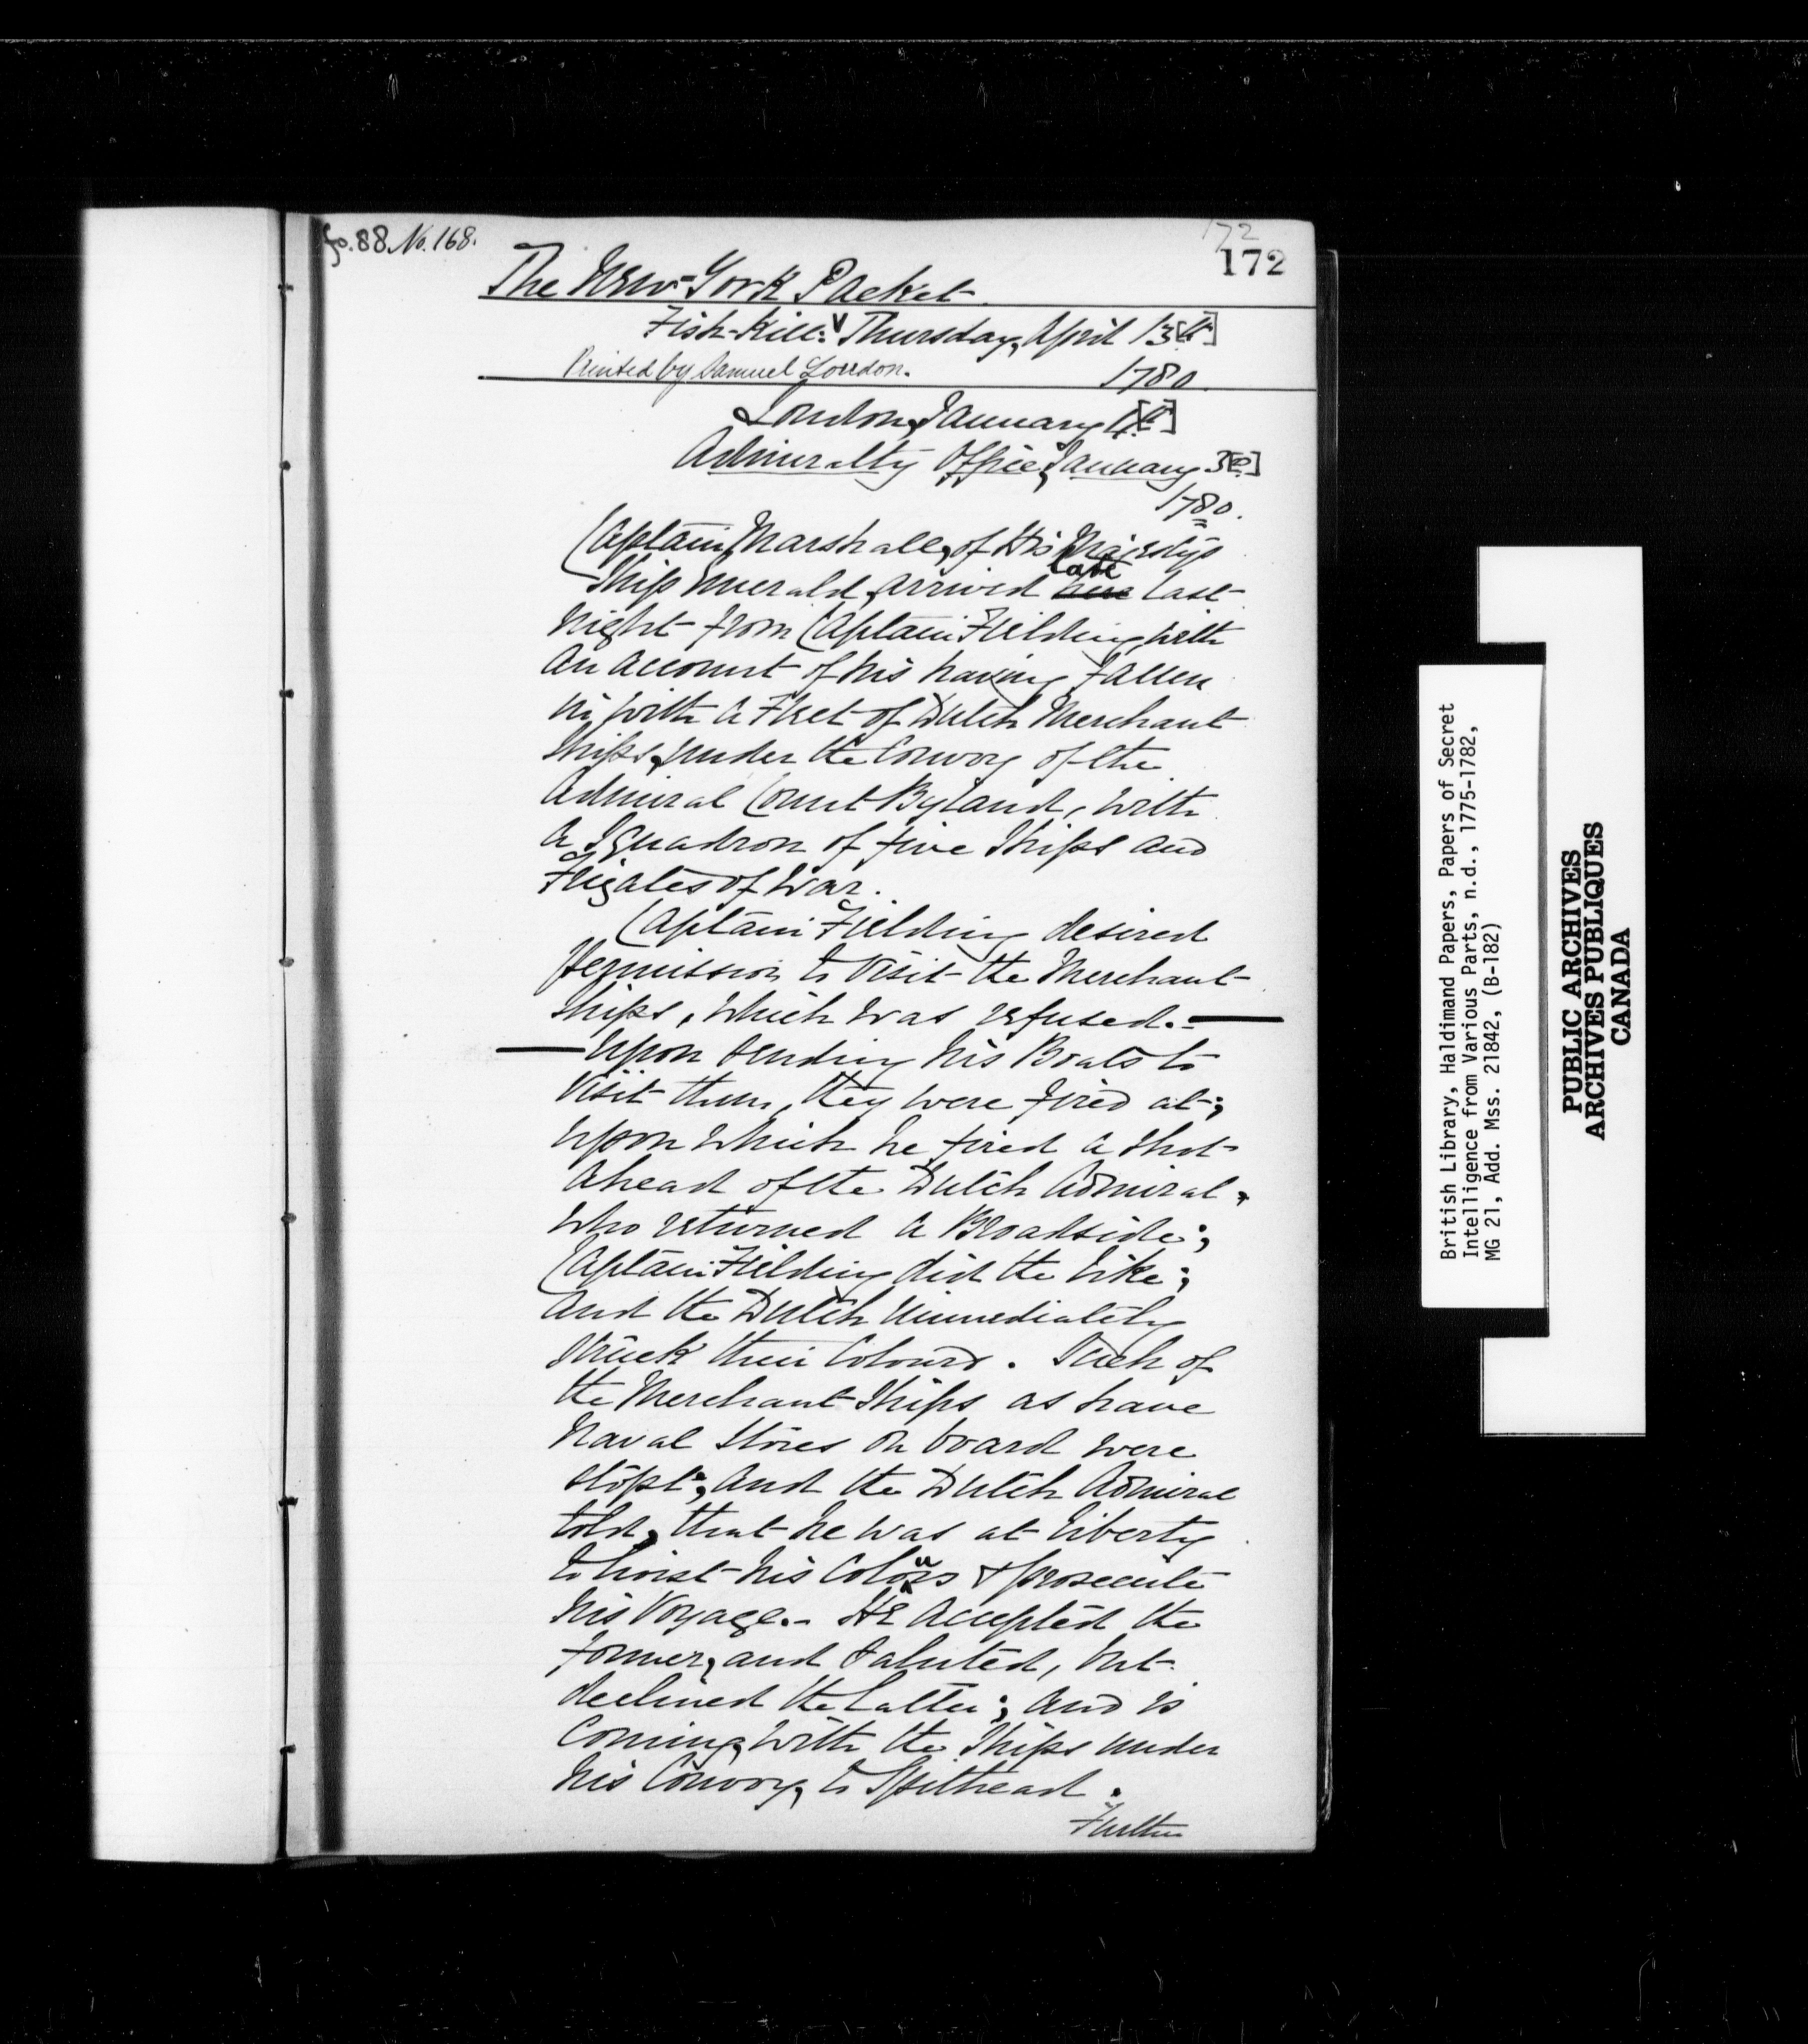 fo. 88. No. 168.
172
172
The New-York Packet
Fish-Kill: Thursday, April 13[th]
Printed by Samuel Loudon. 1780.
London, January
Admiralty Office, January 3[d]
1780.
Captain Marshall, of His Majesty's
late
Ship Emerald, arrived here last
night from Captain Fielding, with
an account of his having fallen
in with a Fleet of Dutch Merchant
Ships, under the Convoy of the
Admiral Count Byland, with
a Squadron of five Ships and
Frigates of War.
Captain Fielding desired
Permission to visit the Merchant
Ships, which was refused.—
—Upon sending his Boats to
visit them, they were fired at;
upon which he fired a Shot
ahead of the Dutch Admiral,
who returned a Broadside;
Captain Fielding did the like;
and the Dutch immediately
struck their Colours. Such of
the Merchant Ships as have
Naval Stores on board were
stopt; and the Dutch Admiral
told, that he was at liberty
to hoist his Colours & prosecute
his Voyage.- He accepted the
former, and saluted, but
declined the latter; and is
coming, with the Ships under
his Convoy, to Spithead.
Further
British Library, Haldimand Papers, Papers of Secret
Intelligence from Various Parts, n.d., 1775-1782,
MG 21, Add. Mss. 21842, (B-182)
PUBLIC ARCHIVES
ARCHIVES PUBLIQUES
CANADA